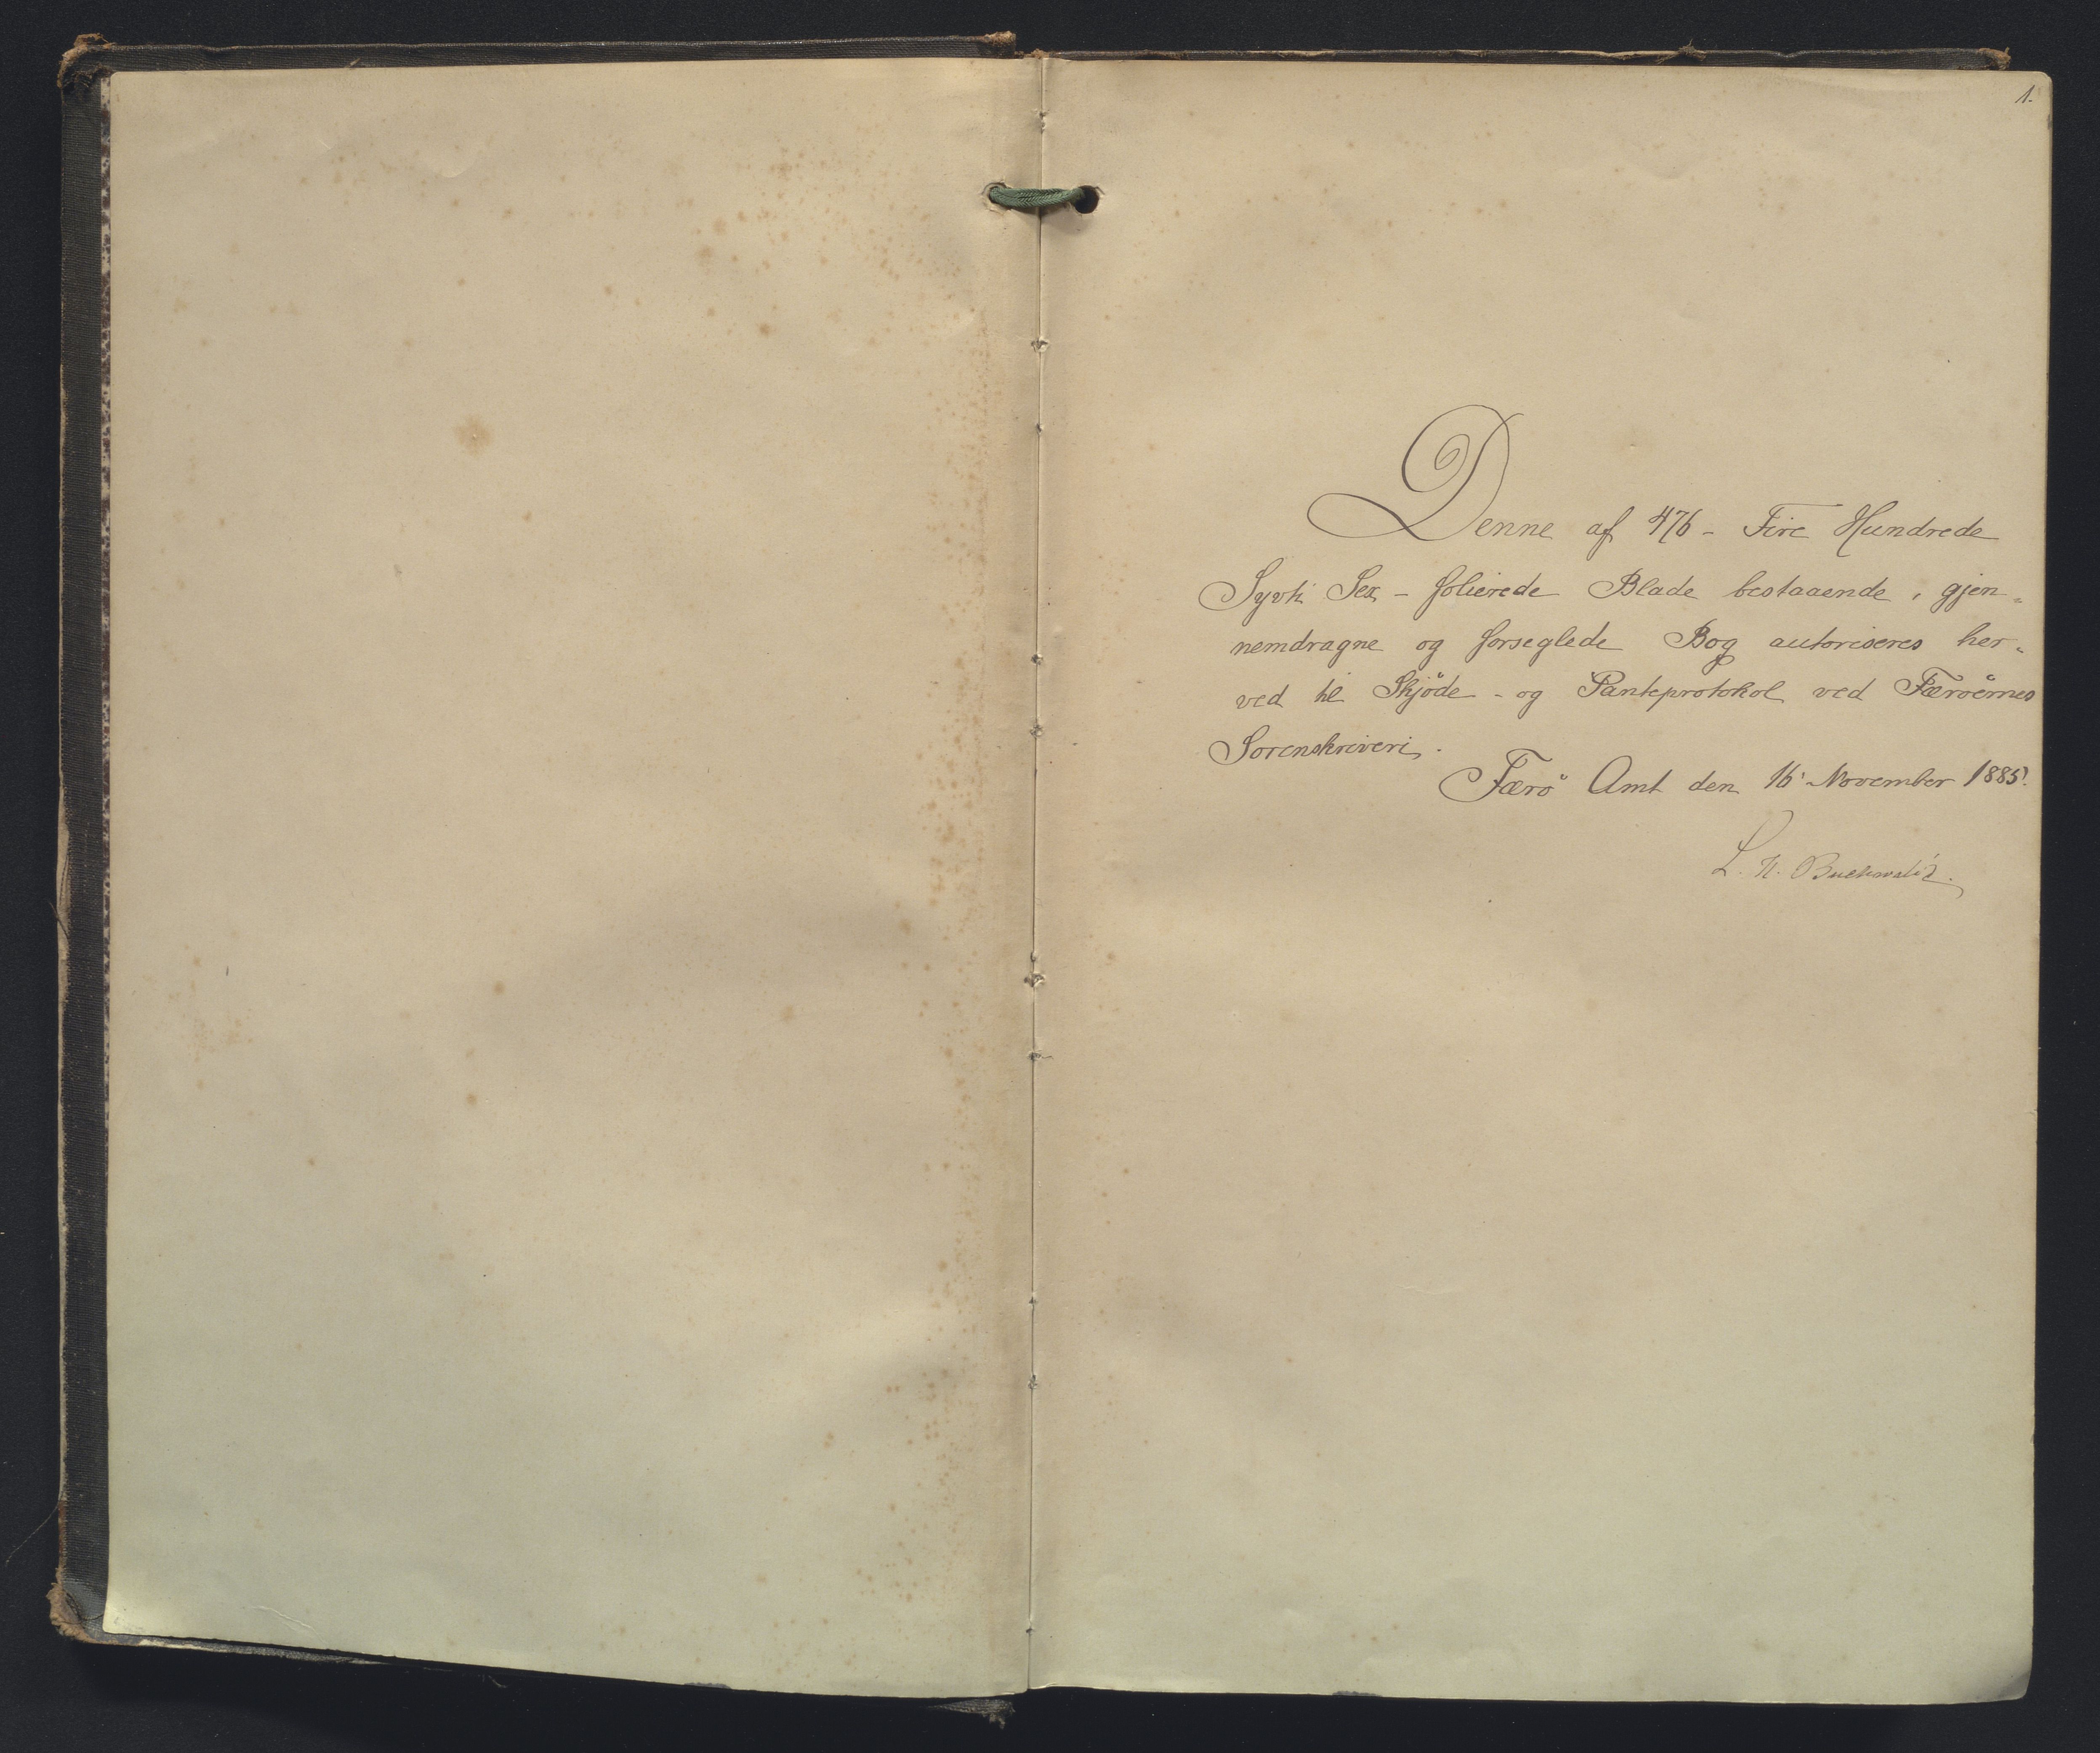 1.
Denne af 476 - Fire Hundrede
Syvti Sex - folierede Blade bestaaende, gjen-
nemdragne og forseglede Bog autoriseres her-
ved til Skjöde- og Panteprotokol ved Færöernes
Sorenskriveri.
Færö Amt den 16' November 1885.
L. H. Buchwald.